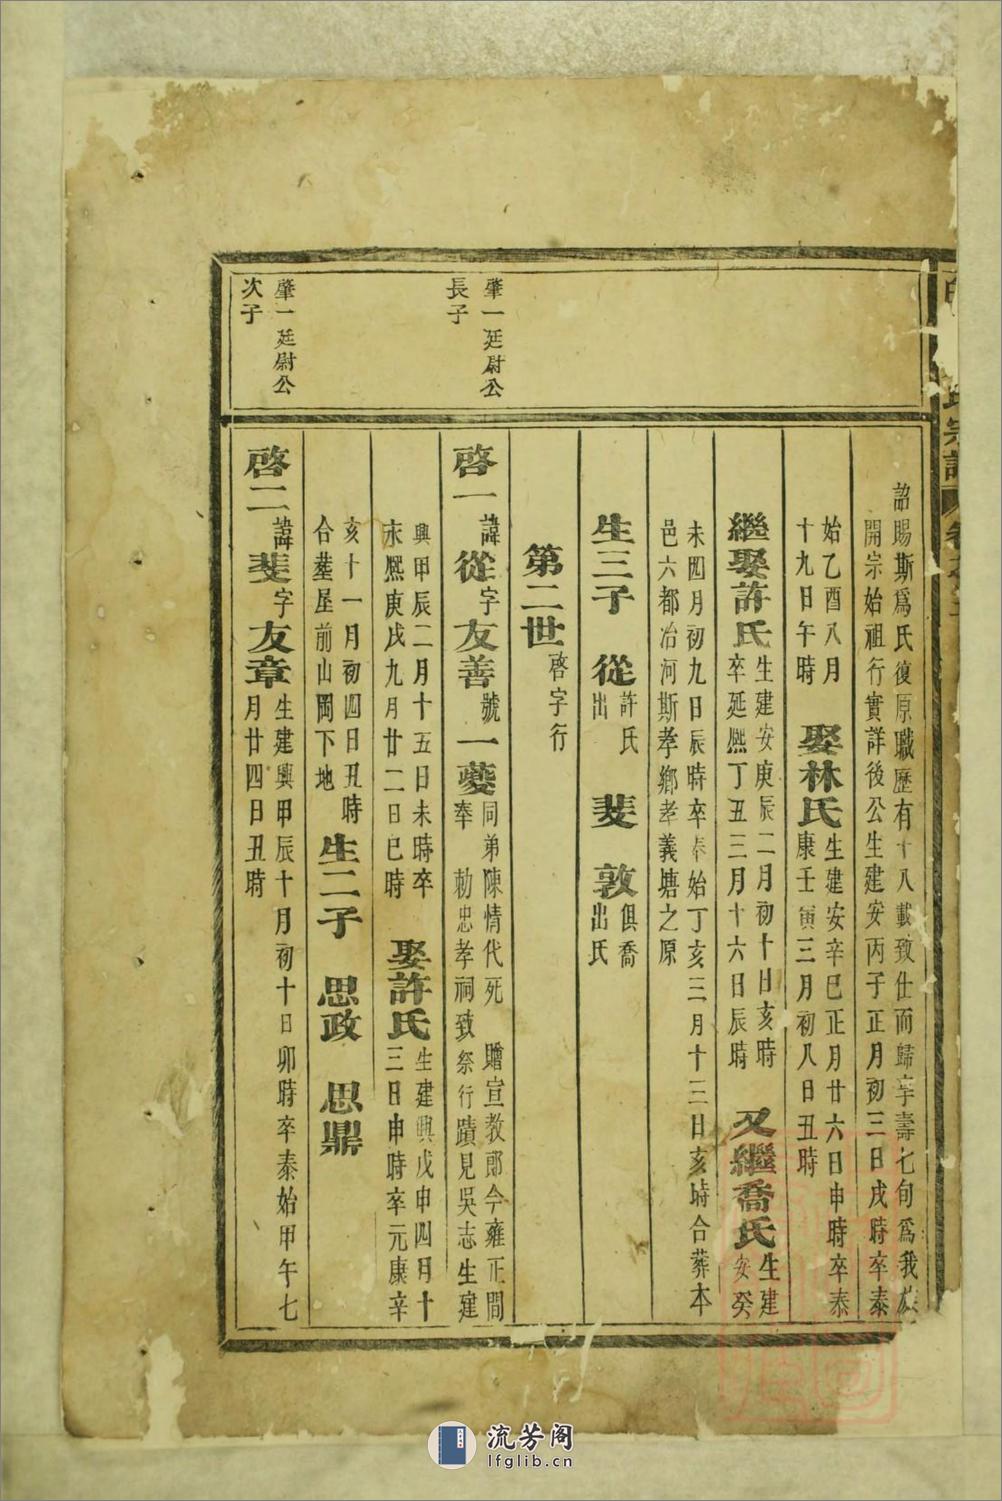 宗譜
詔賜斯爲氏復原職歷有十八載致仕而歸享壽七旬爲我族
開宗始祖行實詳後公生建安丙子正月初三日戌時卒泰
始乙酉八月
十九日午時
娶林氏
生建安辛巳正月廿六日申時卒泰
康壬寅三月初八日丑時
繼娶許氏
生建安庚辰二月初十日亥時
卒延熙丁丑三月十六日辰時
又繼喬氏
生建
安癸
未四月初九日辰時卒泰始丁亥三月十三日亥時合葬本
邑六都冶河斯孝鄉孝義塘之原
生三子 從
許氏
出
斐 敦
俱喬
氏出
第二世
啓字行
肇一廷尉公
長子
啓一
諱從字友善號一夔
同弟陳情代死 贈宣教郎今雍正間
奉 勅忠孝祠致祭行蹟見吳志生建
興甲辰二月十五日未時卒
永熙庚戌九月廿二日巳時
娶許氏
生建興戊申四月十
三日申時卒元康辛
亥十一月初四日丑時
合塟屋前山岡下地
生二子 思政 思鼎
肇一廷尉公
次子
啓二
諱斐字友章
生建興甲辰十月初十日卯時卒泰始甲午七
月廿四日丑時
流芳阁
lfglib.cn